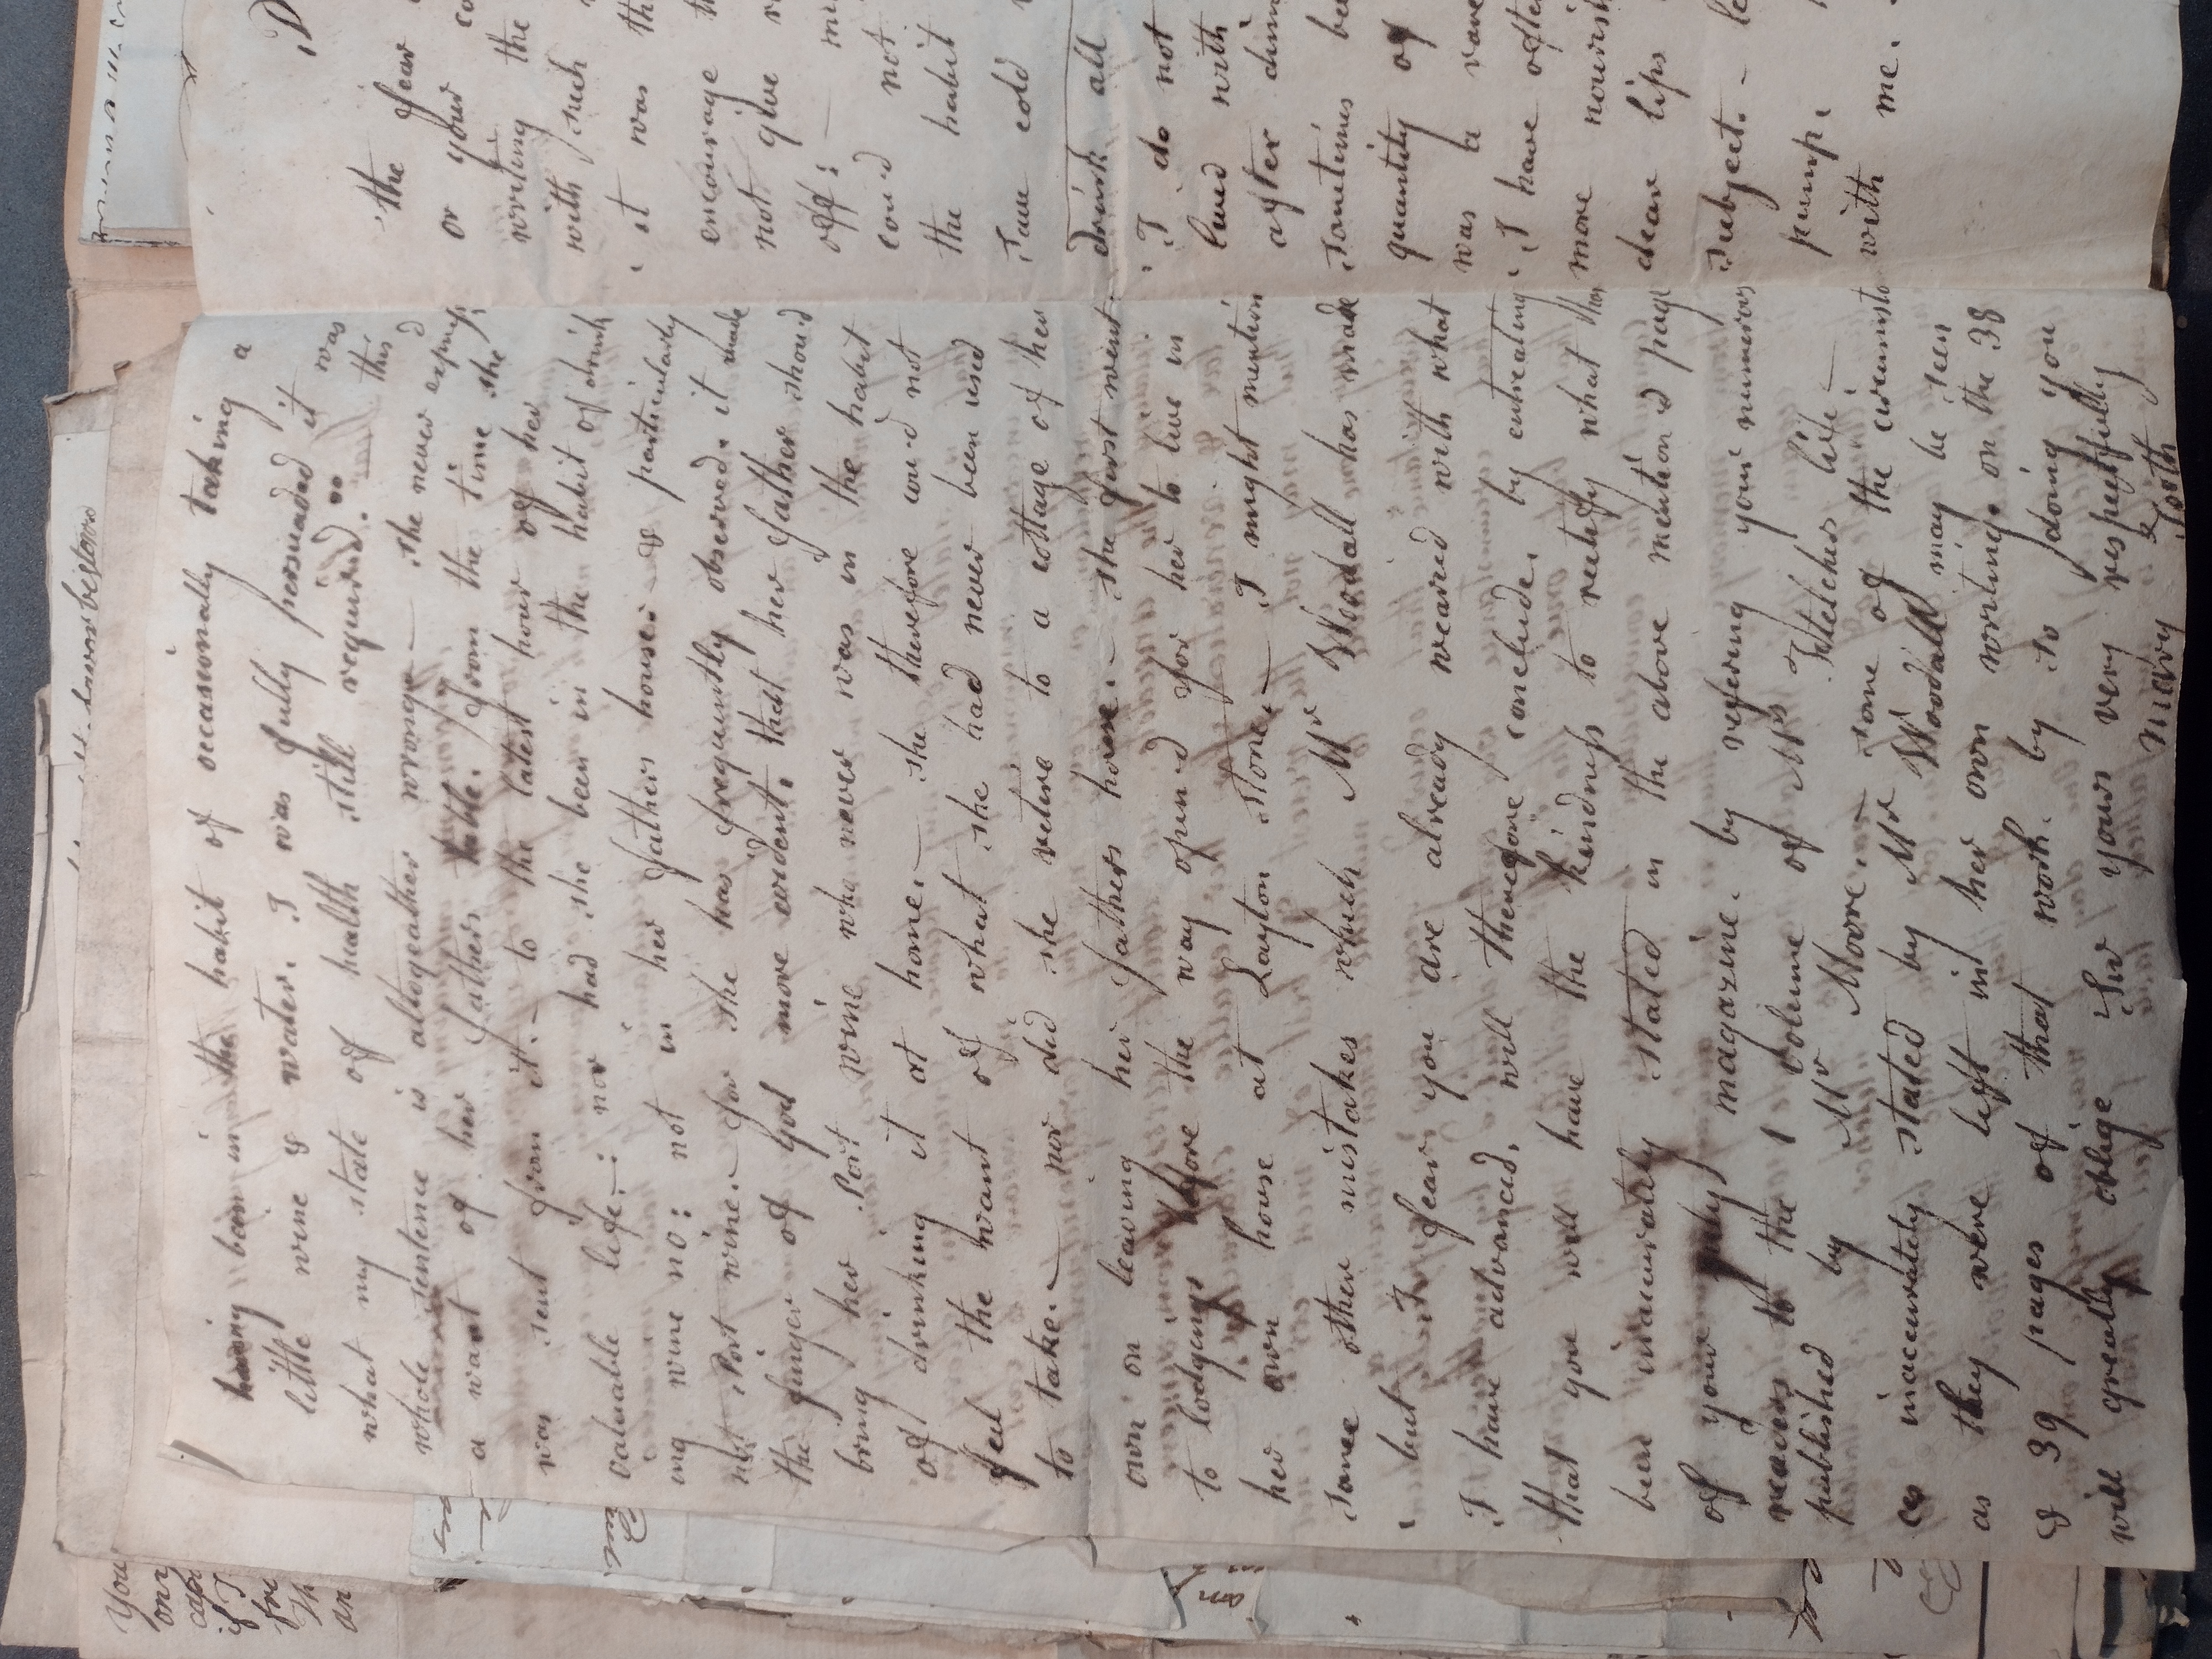 having been in the habit of occasionally taking a
little wine & water. I was fully persuaded it was
what my state of health still required. this
whole sentence is altogeather wrong — she never exprest
a want of her fathers table. from the time she
was sent from it. to the latest hour of her
valuable life.—: nor had she been in the habit of drink
ing wine no: not in her fathers house. & particularly
not Port wine. for she has frequently observed. it made
the finger of god more evident. that her father should
bring her Port wine who never was in the habit
of drinking it at home.— she therefore cou'd not
feel the want of what she had never been used
to take.— nor did she retire to a cottage of her
own on leaving her fathers house.— she first went
to lodgings before the way open'd for her to live in
her own house at Layton stone.— I might mention
some other mistakes which Mr Woodall has made
but I fear you are already wearied with what
I have advanced, will therefore conclude. by entreating
that you will have the kindness to rectefy what has
been inaccurately stated in the above mention'd page
of your magazine. by refering your numerous
readers to the 1 volume of Mrs Fletchers life —
published by Mr Moore.— some of the circumsta
ces inaccurately stated by Mr Woodall may be seen
as they were left in her own writing. on the 38
& 39 pages of that work. by so doing you
will greatly oblige Sir yours very respectfully
Mary Tooth
D
the fear
or your co
writing the
with such
it was th
encourage th
not give
off: — mi
cou'd not
the habit
Saw cold
drink all
I do not
lived with
after dinn
sometimes be
quantity of
was a
I have ofte
more nourish
dear lips
subject. — le
pump.
with me.
You
on
cap
if I
fr
Th
an